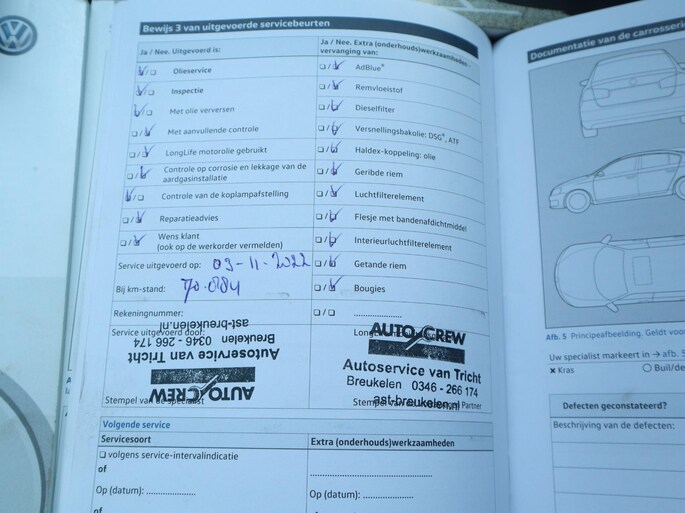 Bewijs 3 van uitgevoerde servicebeurten
Ja / Nee. Uitgevoerd is:
Olieservice
Inspectie
Met olie verversen
Met aanvullende controle
LongLife motorolie gebruikt
Controle op corrosie en lekkage van de
aardgasinstallatie
Controle van de koplampafstelling
Reparatieadvies
Wens klant
(ook op de werkorder vermelden)
Service uitgevoerd op: 03-11-2022
Bij km-stand: 70.884
Rekeningnummer:
Service uitgevoerd door:
AUTO CREW
Autoservice van Tricht
Breukelen 0346 - 266 174
ast-breukelen.nl
Stempel van de specialist
Ja / Nee. Extra (onderhouds)werkzaamheden -
vervanging van:
AdBlue®
Remvloeistof
Dieselfilter
Versnellingsbakolie: DSG®, ATF
Haldex-koppeling: olie
Geribde riem
Luchtfilterelement
Flesje met bandenafdichtmiddel
Interieurluchtfilterelement
Getande riem
Bougies
....................
AUTO CREW
Autoservice van Tricht
Breukelen 0346 - 266 174
ast-breukelen.nl
Stempel van Partner
Volgende service
Servicesoort
volgens service-intervalindicatie
of
Op (datum): ....................
of
Extra (onderhouds)werkzaamheden
Op (datum): ....................
Documentatie van de carrosserie
Afb. 5 Principeafbeelding. Geldt voor
Uw specialist markeert in → afb. 5
Kras
Buil/de
Defecten geconstateerd?
Beschrijving van de defecten: